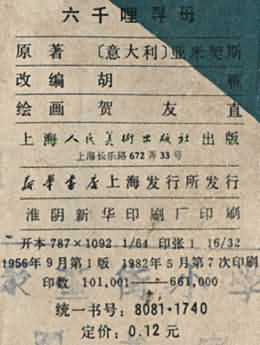 六千哩寻母
原著〔意大利〕亚米契斯
改编 胡雁
绘画 贺友直
上海人民美术出版社出版
上海长乐路672弄33号
新华书店上海发行所发行
淮阴新华印刷厂印刷
开本787×1092 1/64 印张1 16/32
1956年9月第1版 1982年5月第7次印刷
印数 101,001—661,000
统一书号：8081·1740
定价：0.12元